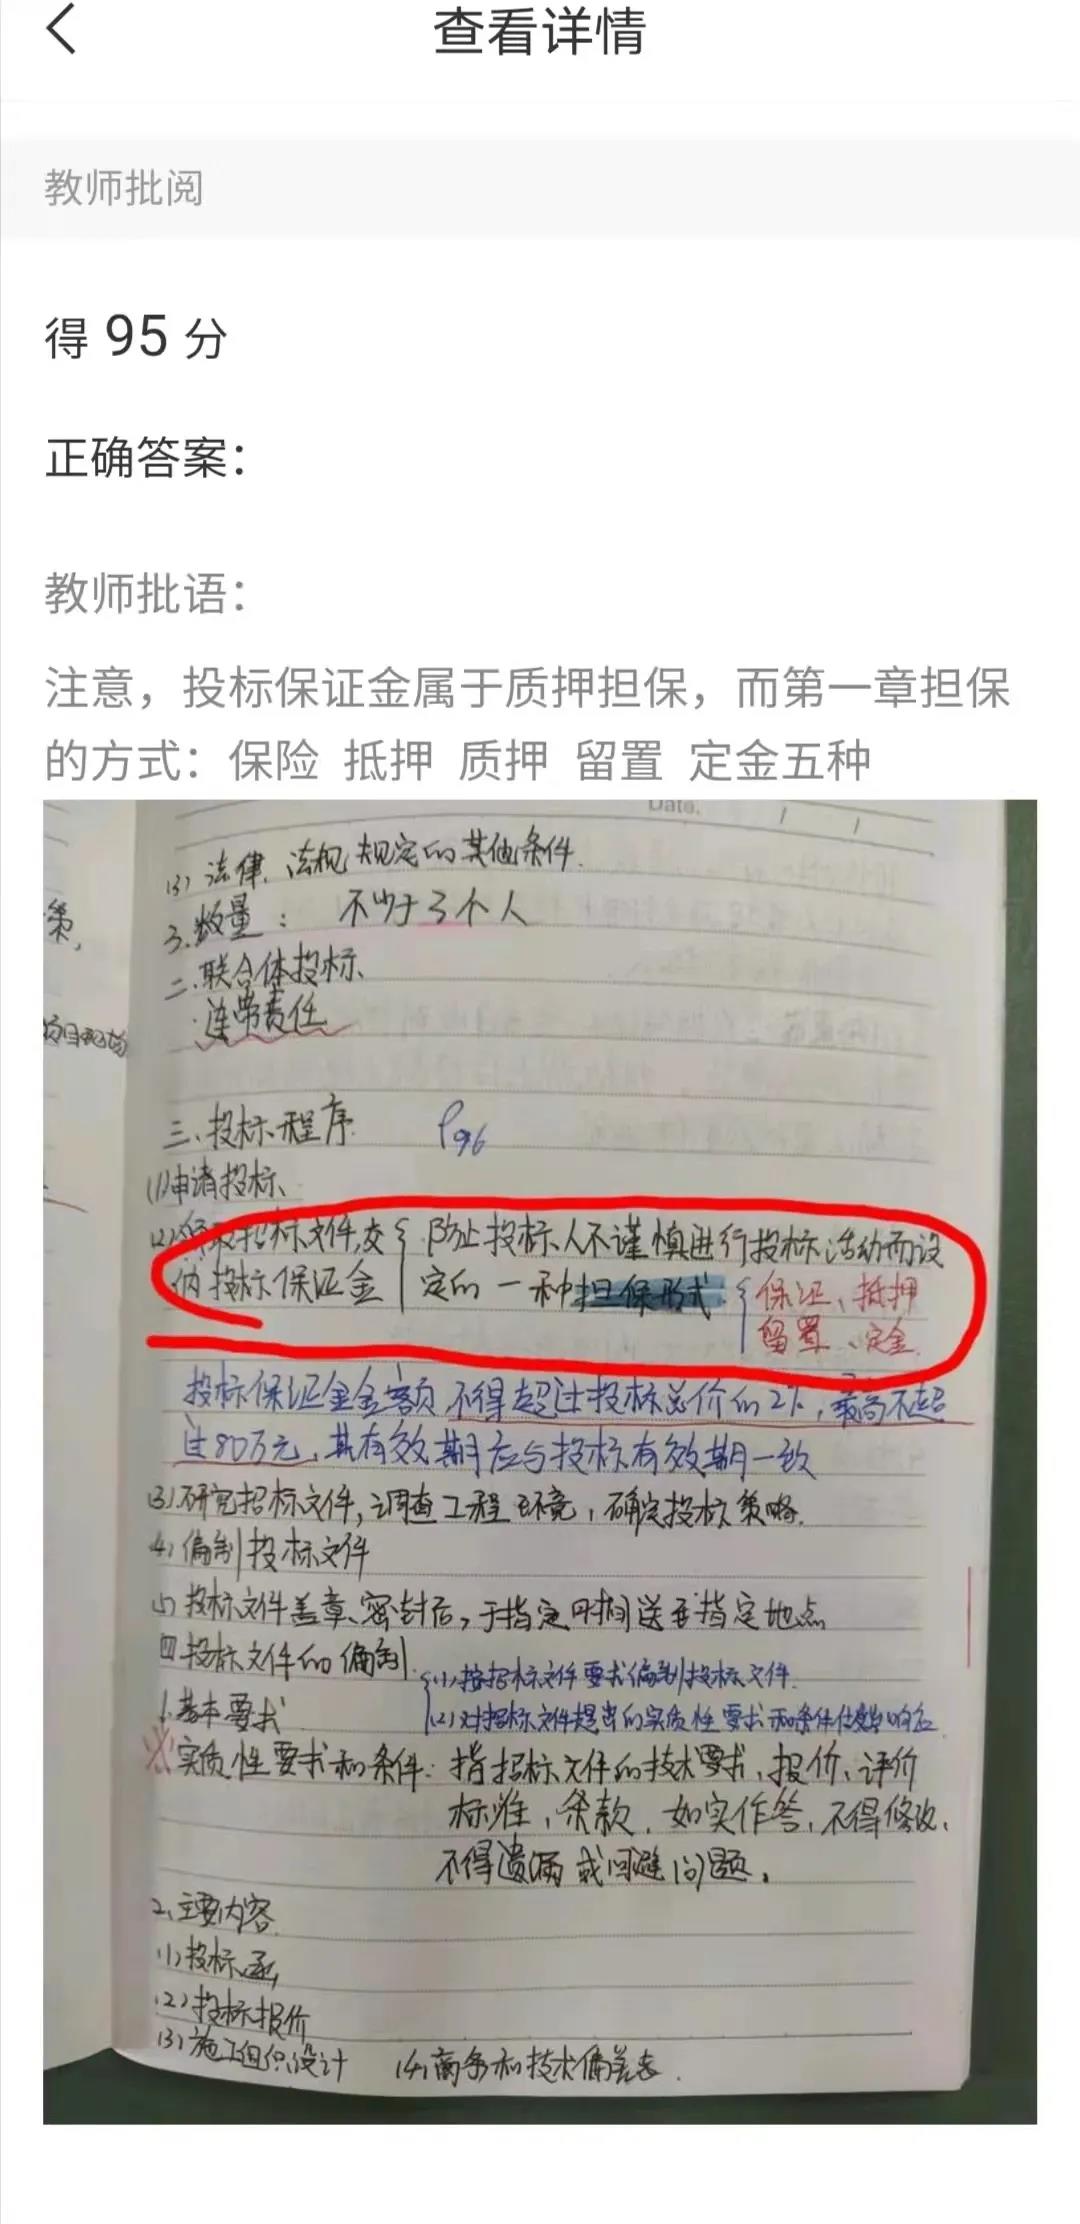 查看详情
教师批阅
得 95 分
正确答案：
教师批语：
注意，投标保证金属于质押担保，而第一章担保
的方式：保险 抵押 质押 留置 定金五种
Date.
(3) 法律、法规规定的其他条件.
3.数量： 不少于3个人
二.联合体投标
连带责任
三、投标程序 P96
(1)申请投标、
(2)领取招标文件,交 { 防止投标人不谨慎进行投标活动而设
纳投标保证金 定的一种担保形式 { 保证、抵押
留置、定金.
投标保证金金额不得超过投标总价的2%,最高不超
过80万元,其有效期应与投标有效期一致
(3)研究招标文件,调查工程环境,确定投标策略.
(4)编制投标文件
(5)投标文件盖章、密封后,于指定时间送至指定地点
四.投标文件的编制
{(1)按招标文件要求编制投标文件.
1.基本要求 (2)对招标文件提出的实质性要求和条件作出响应
※实质性要求和条件：指招标文件的技术要求、报价、评价
标准,条款.如实作答,不得修改,
不得遗漏或回避问题。
2.主要内容
(1)投标函
(2)投标报价
(3)施工组织设计 (4)商务和技术偏差表.
策,